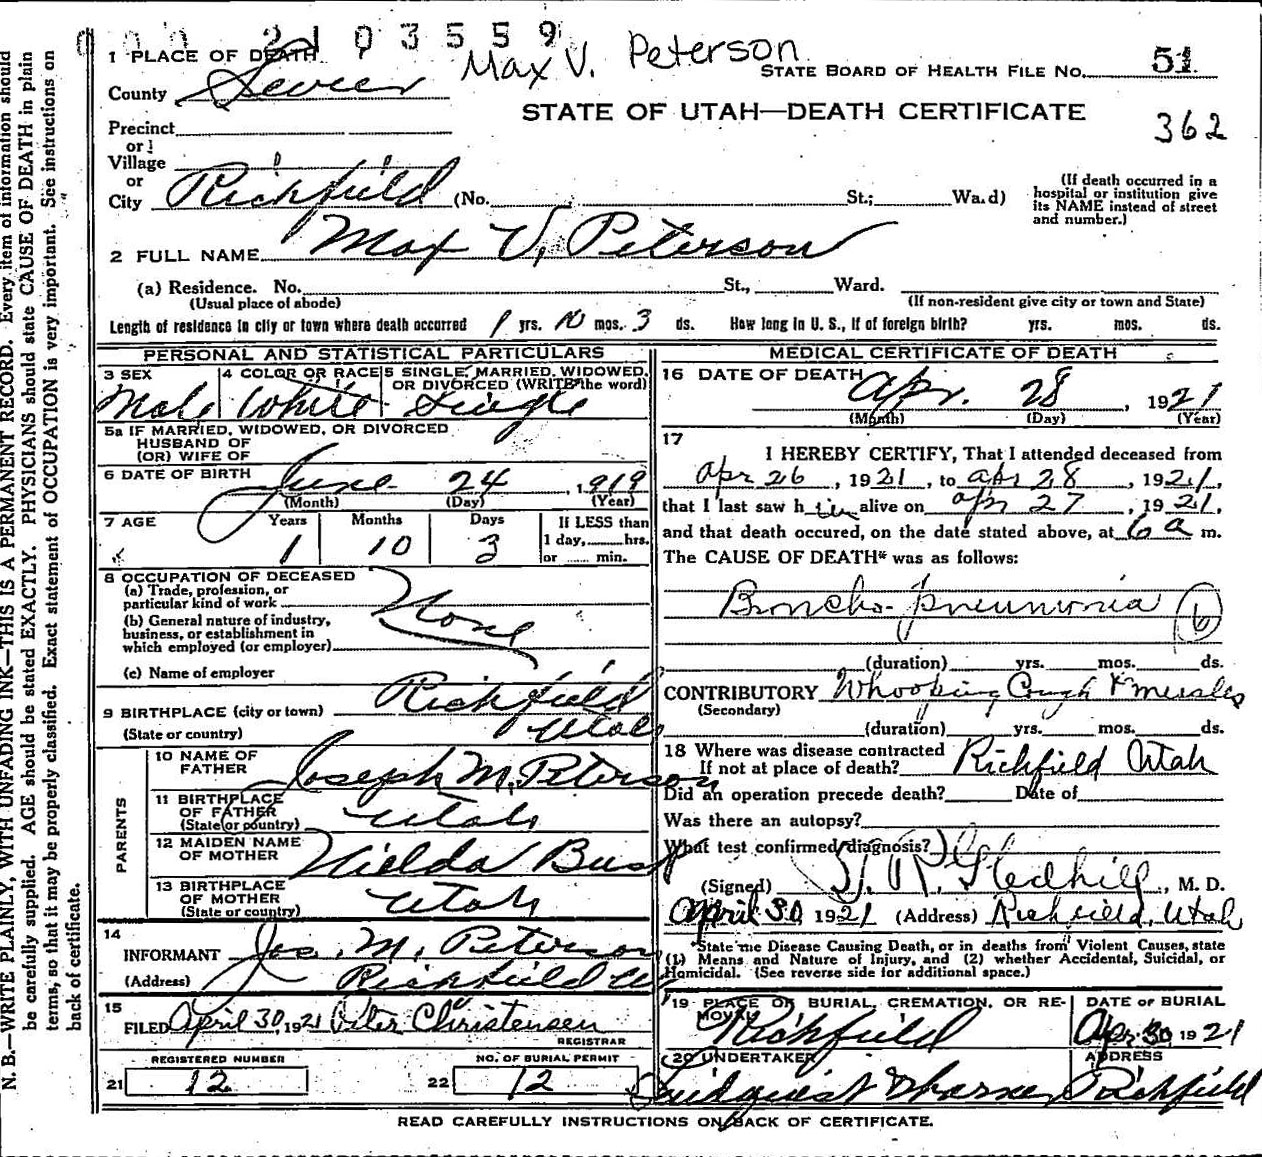 2103559
Max V. Peterson
1 PLACE OF DEATH
STATE BOARD OF HEALTH FILE NO. 51
County Sevier
STATE OF UTAH—DEATH CERTIFICATE
362
Precinct
or
Village
or
City Richfield (No. St.; Ward)
(If death occurred in a
hospital or institution give
its NAME instead of street
and number.)
2 FULL NAME Max V. Peterson
(a) Residence. No. St., Ward.
(Usual place of abode) (If non-resident give city or town and State)
Length of residence in city or town where death occurred 1 yrs. 10 mos. 3 ds. How long in U. S., if of foreign birth? yrs. mos. ds.
PERSONAL AND STATISTICAL PARTICULARS
3 SEX Male
4 COLOR OR RACE White
5 SINGLE, MARRIED, WIDOWED,
OR DIVORCED (WRITE the word) Single
5a IF MARRIED, WIDOWED, OR DIVORCED
HUSBAND OF
(OR) WIFE OF
6 DATE OF BIRTH June 24, 1919
(Month) (Day) (Year)
7 AGE Years Months Days
1 10 3
If LESS than
1 day, hrs.
or min.
8 OCCUPATION OF DECEASED
(a) Trade, profession, or
particular kind of work
None
(b) General nature of industry,
business, or establishment in
which employed (or employer)
(c) Name of employer
9 BIRTHPLACE (city or town) Richfield
(State or country) Utah
PARENTS
10 NAME OF
FATHER Joseph M. Peterson
11 BIRTHPLACE
OF FATHER
(State or country) Utah
12 MAIDEN NAME
OF MOTHER Hilda
13 BIRTHPLACE
OF MOTHER
(State or country) Utah
14
INFORMANT Jos. M. Peterson
(Address) Richfield
15
FILED April 30, 1921 Peter Christensen
REGISTRAR
REGISTERED NUMBER NO. OF BURIAL PERMIT
21 12 22 12
MEDICAL CERTIFICATE OF DEATH
16 DATE OF DEATH Apr. 28, 1921
(Month) (Day) (Year)
17
I HEREBY CERTIFY, That I attended deceased from
Apr 26, 1921, to Apr 28, 1921,
that I last saw him alive on Apr 27, 1921,
and that death occured, on the date stated above, at 6 a m.
The CAUSE OF DEATH* was as follows:
Broncho-pneumonia
(duration) yrs. mos. ds.
CONTRIBUTORY Whooping Cough & measles
(Secondary)
(duration) yrs. mos. ds.
18 Where was disease contracted
If not at place of death? Richfield Utah
Did an operation precede death? Date of
Was there an autopsy?
What test confirmed diagnosis?
(Signed) Gledhill, M. D.
April 30 1921 (Address) Richfield, Utah
*State the Disease Causing Death, or in deaths from Violent Causes, state
(1) Means and Nature of Injury, and (2) whether Accidental, Suicidal, or
Homicidal. (See reverse side for additional space.)
19 PLACE OF BURIAL, CREMATION, OR RE-
MOVAL Richfield
DATE OF BURIAL
Apr 30 1921
20 UNDERTAKER
ADDRESS
Richfield
READ CAREFULLY INSTRUCTIONS ON BACK OF CERTIFICATE.
N. B.—WRITE PLAINLY, WITH UNFADING INK—THIS IS A PERMANENT RECORD. Every item of information should
be carefully supplied. AGE should be stated EXACTLY. PHYSICIANS should state CAUSE OF DEATH in plain
terms, so that it may be properly classified. Exact statement of OCCUPATION is very important. See instructions on
back of certificate.